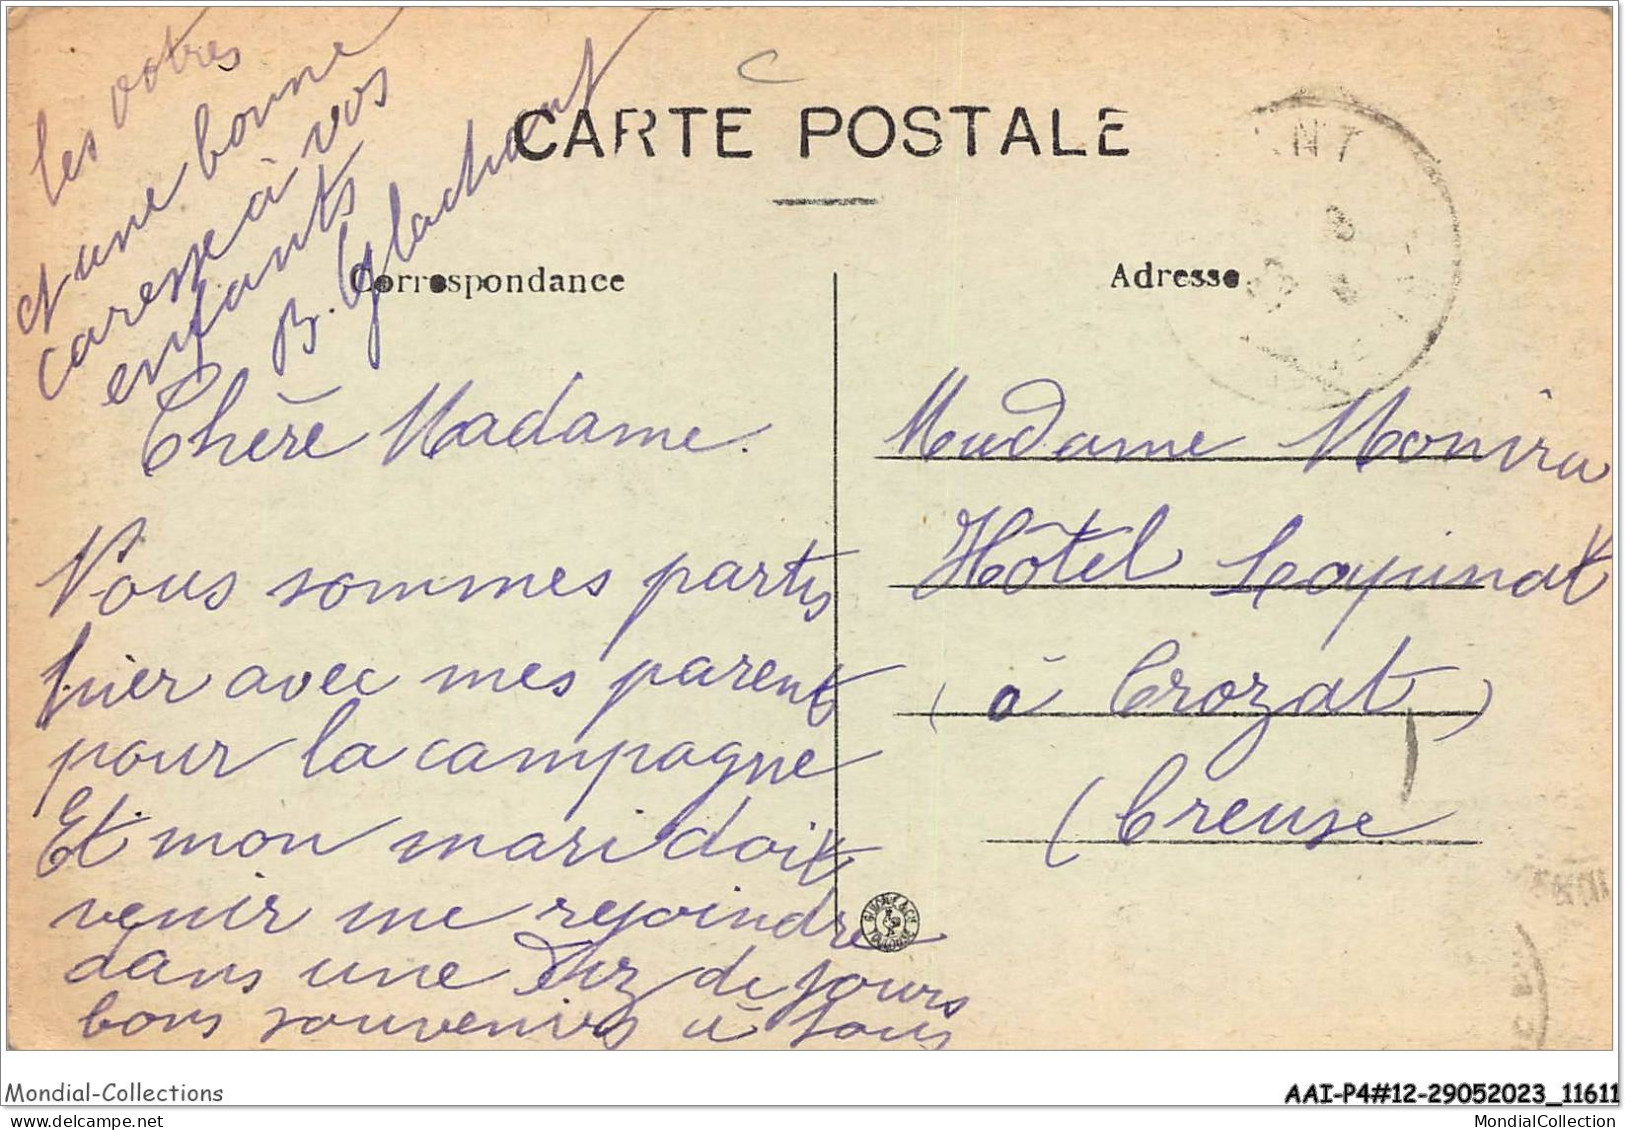 CARTE POSTALE
Correspondance
Adresse
Chère Madame.
Nous sommes partis
hier avec mes parent
pour la campagne
Et mon mari doit
venir me rejoindre
dans une diz de jours
bons souvenirs à tous
les votres
et une bonne
caresse à vos
enfants
B. Glachant
Madame
Hôtel
(à Crozat)
(Creuse)
Mondial-Collections
AAI-P4#12-29052023_11611
www.delcampe.net
MondialCollection